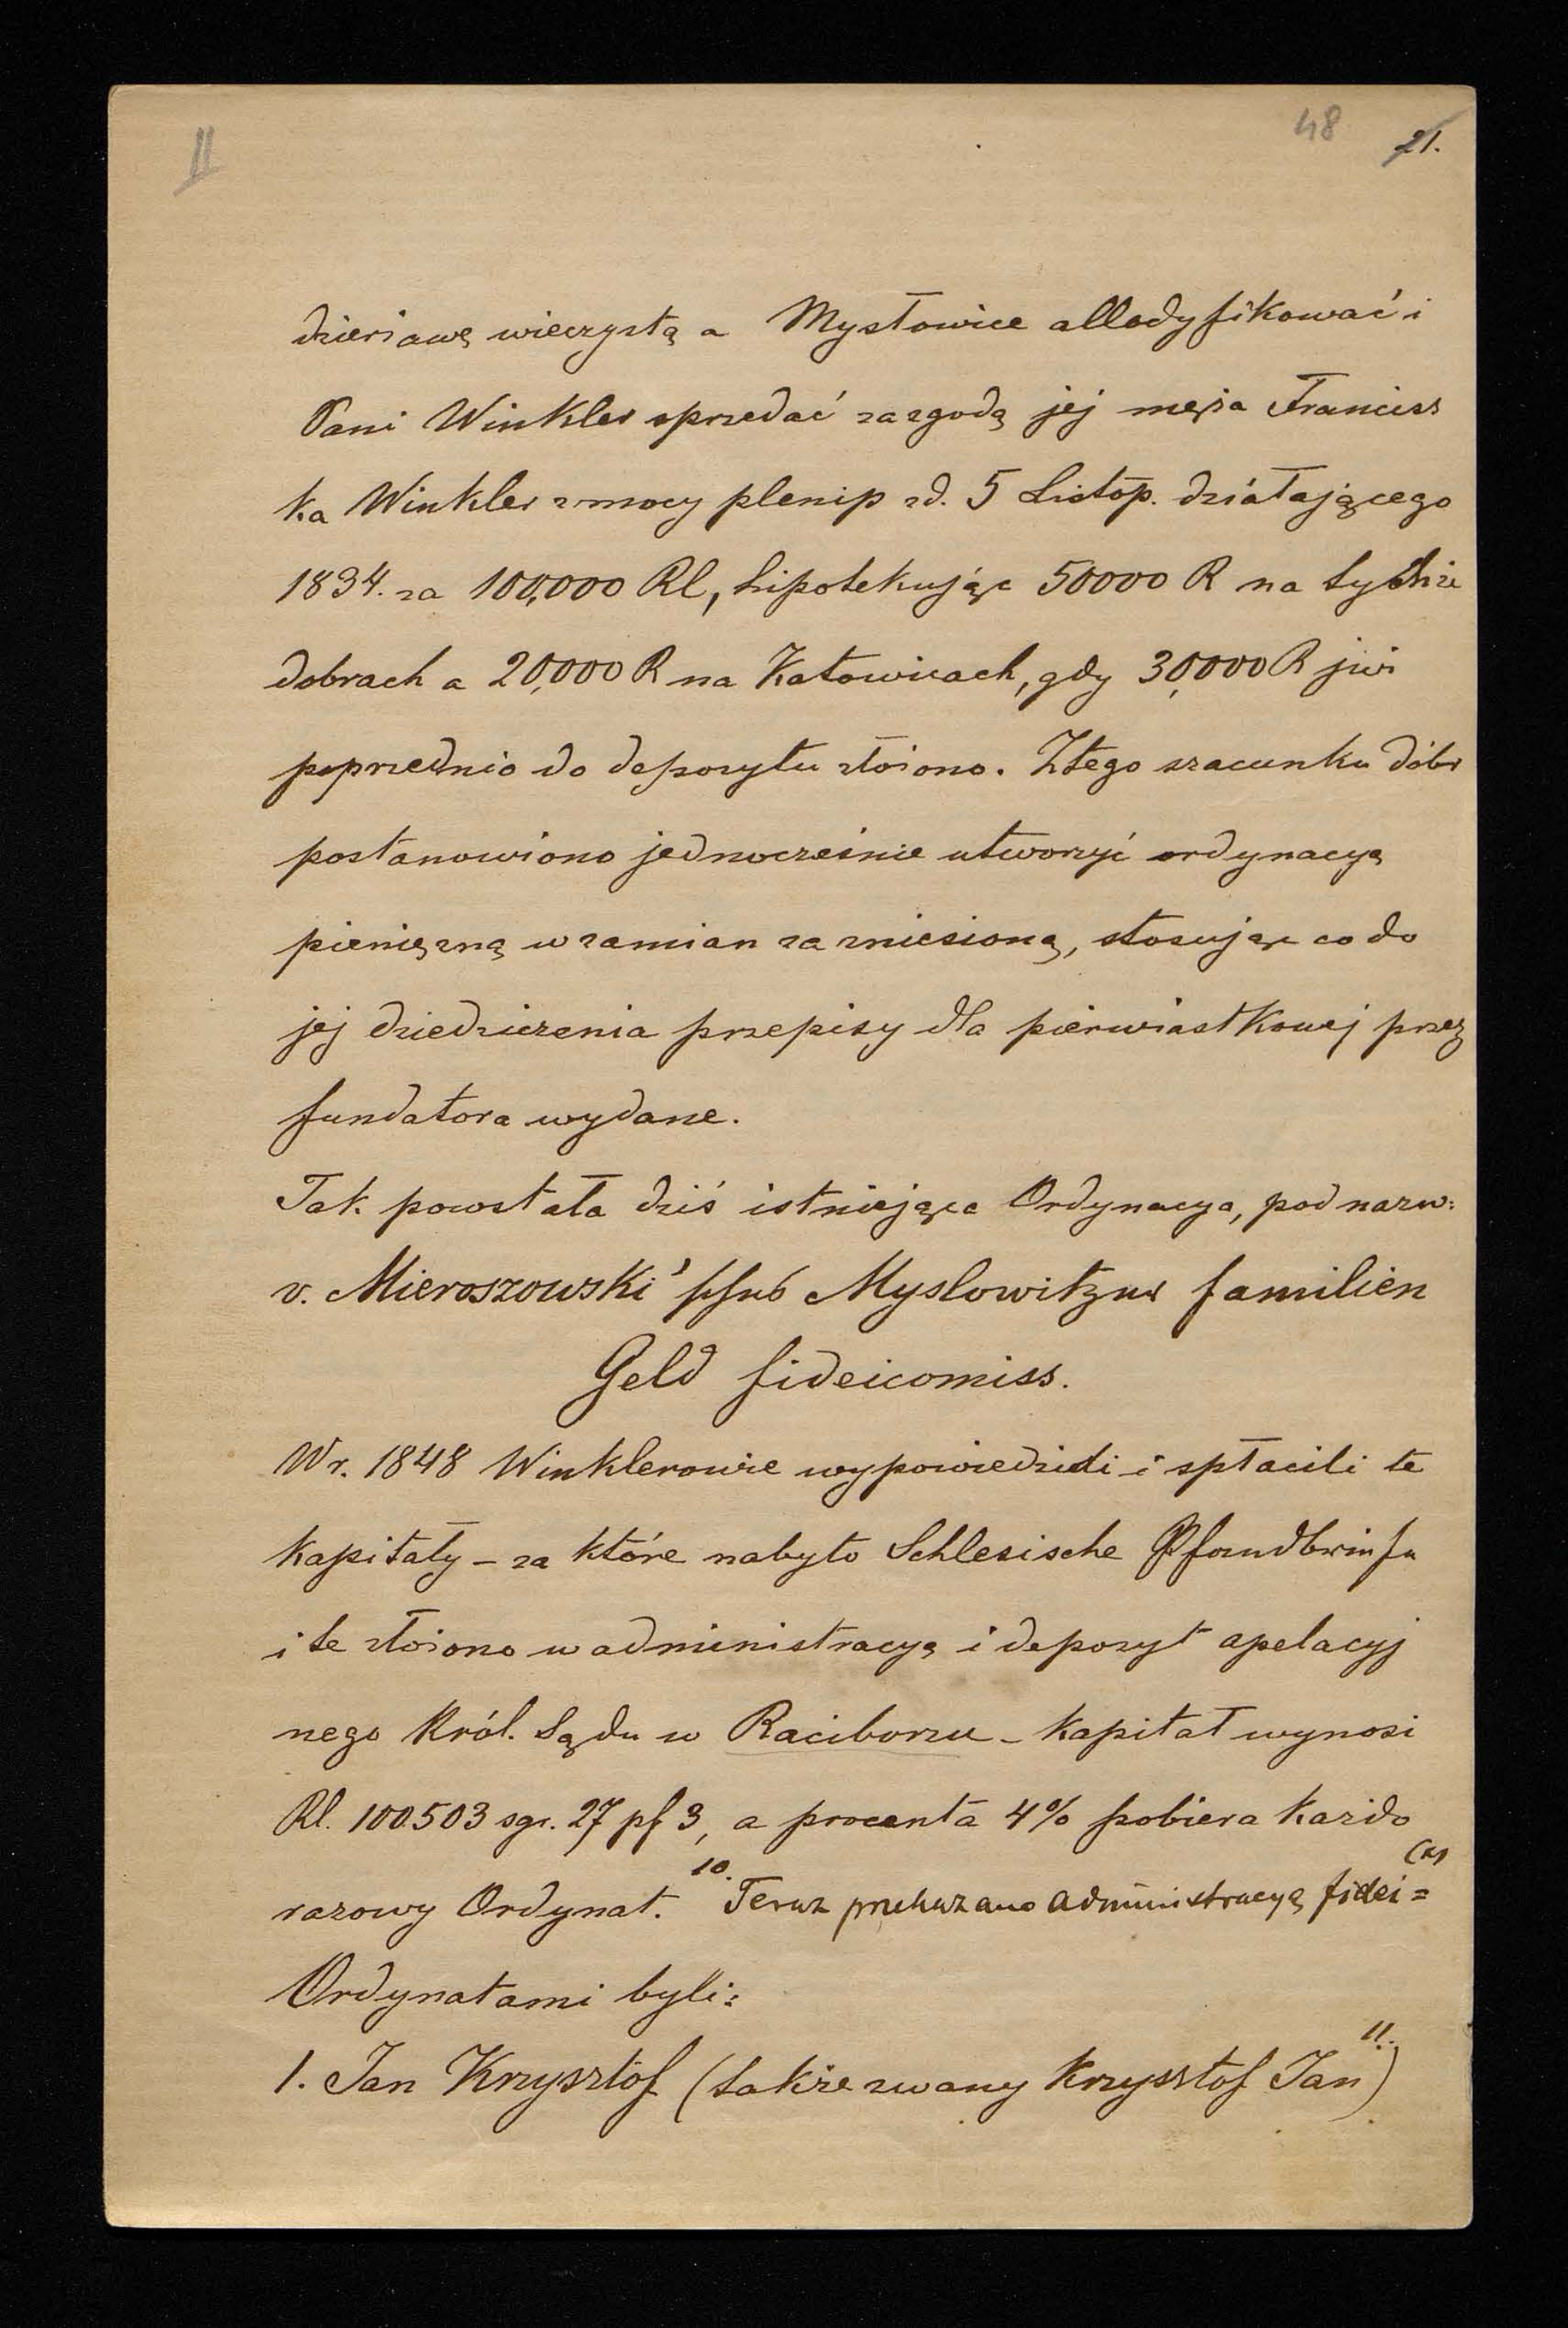 II
48
21.
dzierżawę wieczystą a Mysłowice allodyfikować i
Pani Winkler sprzedać za zgodą jej męża Francisz
ka Winkler z mocy plenip zd. 5 Listop. działającego
1834. za 100,000 Rl, hipotekując 50000 R na tychże
dobrach a 20,000 R na Katowicach, gdy 30,000 R już
poprzednio do depozytu złożono. Z tego szacunku dóbr
postanowiono jednocześnie utworzyć ordynacyą
pieniężną w zamian za zniesioną, stosując co do
jej dziedziczenia przepisy dla pierwiastkowej przez
fundatora wydane.
Tak powstała dziś istniejąca Ordynacya, pod nazw:
v. Mieroszowski' Myslowitzer familien
Geld fideicomiss.
W r. 1848 Winklerowie wypowiedzieli i spłacili te
kapitały – za które nabyto Schlesische Pfandbriefe
i te złożono w administracyą i depozyt apelacyj
nego Król. Sądu w Raciborzu – kapitał wynosi
Rl. 100.503 sgr. 27 pf 3, a procenta 4% pobiera każdo
razowy Ordynat. 10. Teraz przekazano administracyą fidei=
Ordynatami byli:
1. Jan Krzysztof (także zwany Krzysztof Jan) 11.